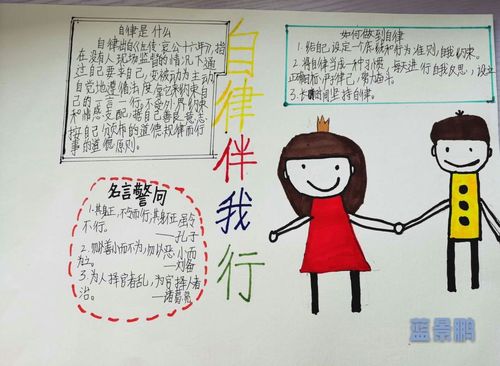 自律是什么
自律出自《左传·哀公十六年》,指
在没有人现场监督的情况下,通
过自己要求自己,变被动为主动,
自觉地遵循法度,拿它来约束自
己的一言一行。不受外界约束
和情感支配,据自己善良意志
按自己颁布的道德规律而行
事的道德原则。
如何做到自律
1.给自己设定一个底线和行为准则,自我约束。
2.将自律当成一种习惯,每天进行自我反思,设立
3.长时间坚持自律。
自律伴我行
名言警句
1.其身正,不令而行;其身不正,虽令
不行。
——孔子
2.勿以善小而不为,勿以恶小而
为之。
——刘备
3.为人择官者乱,为官择人者
治。
——诸葛亮
蓝景鹏